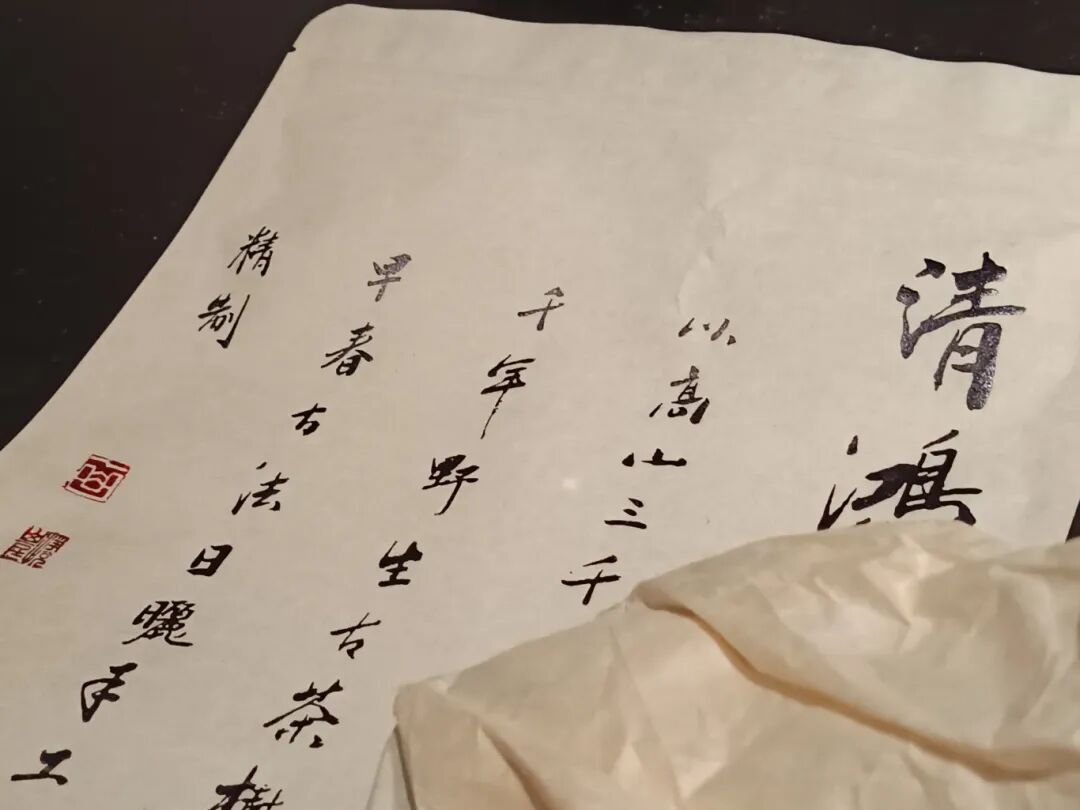 清鸿
以高山三千
千年野生古茶樹
早春古法日曬手工
精制